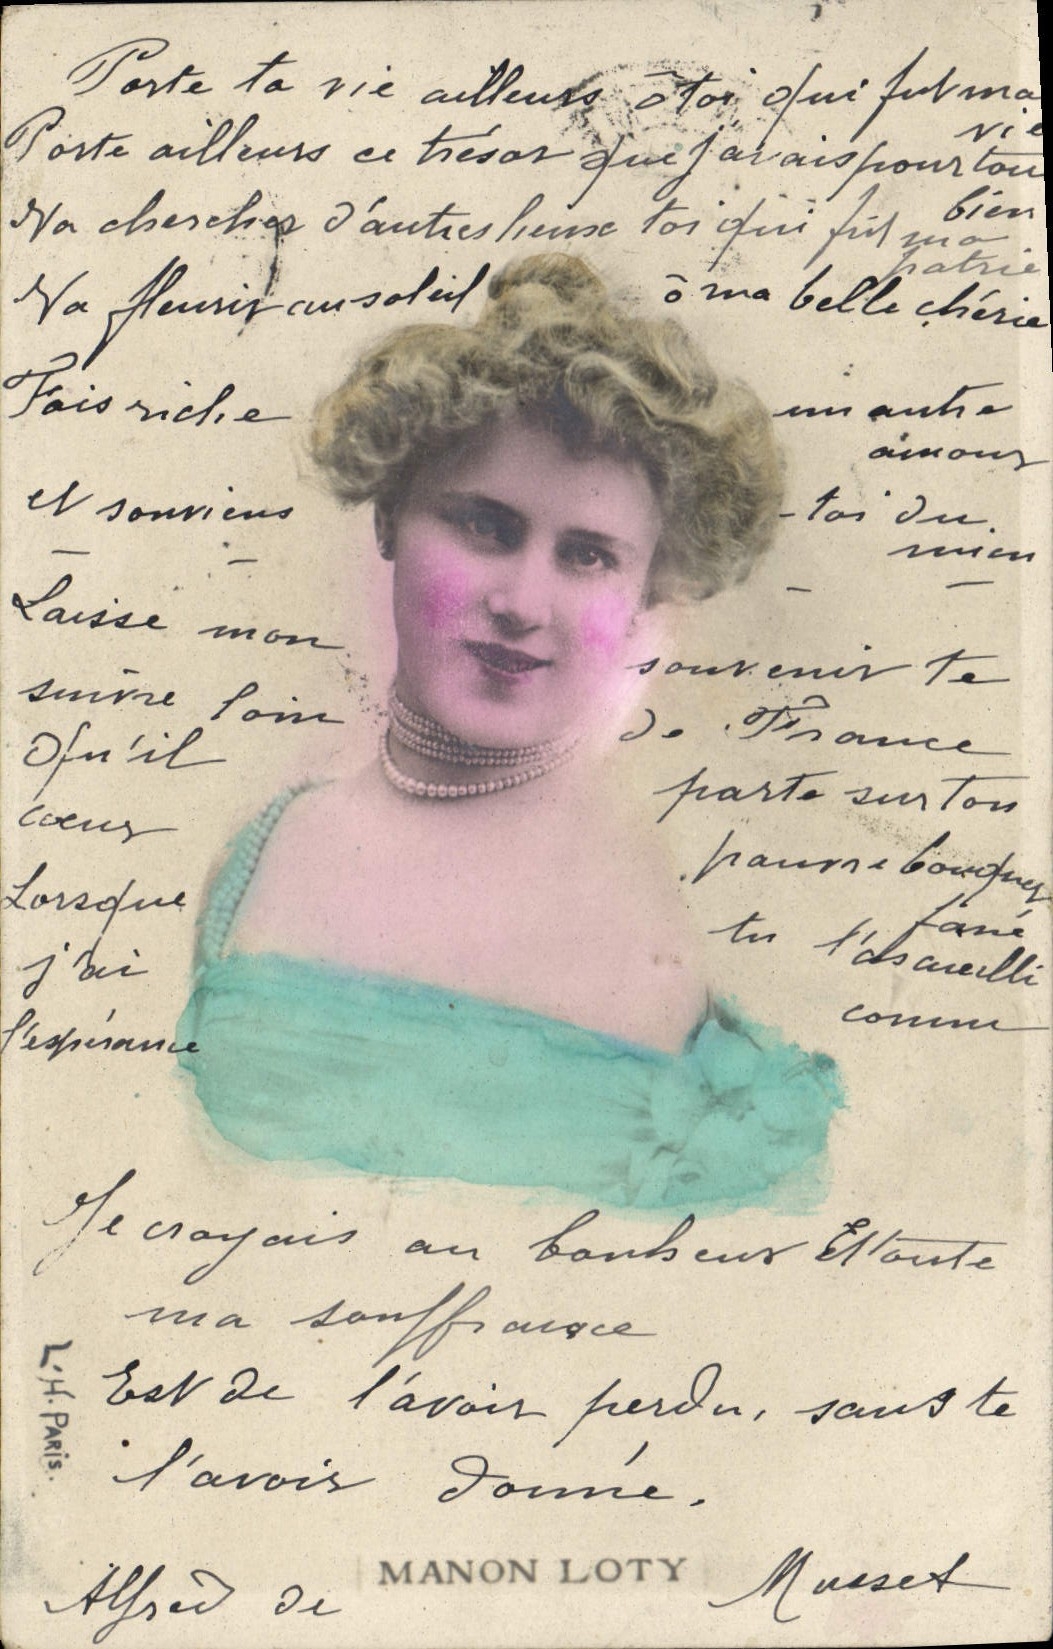 Porte ta vie ailleurs ô toi qui fut ma vie
Porte ailleurs ce trésor que j'avais pour tou bien
Va chercher d'autres lieux toi qui fut ma patrie
Va fleurir au soleil ô ma belle chérie
Fais riche un autre amour
et souviens-toi du mien
Laisse mon souvenir te
suivre loin de France
Qu'il parte sur ton
cœur pauvre bouquet fané
Lorsque tu l'as cueilli
j'ai comme
l'espérance
Je croyais au bonheur Et toute
ma souffrance
Est de l'avoir perdu, sans te
l'avoir donné.
L.H. PARIS.
MANON LOTY
Alfred de Musset